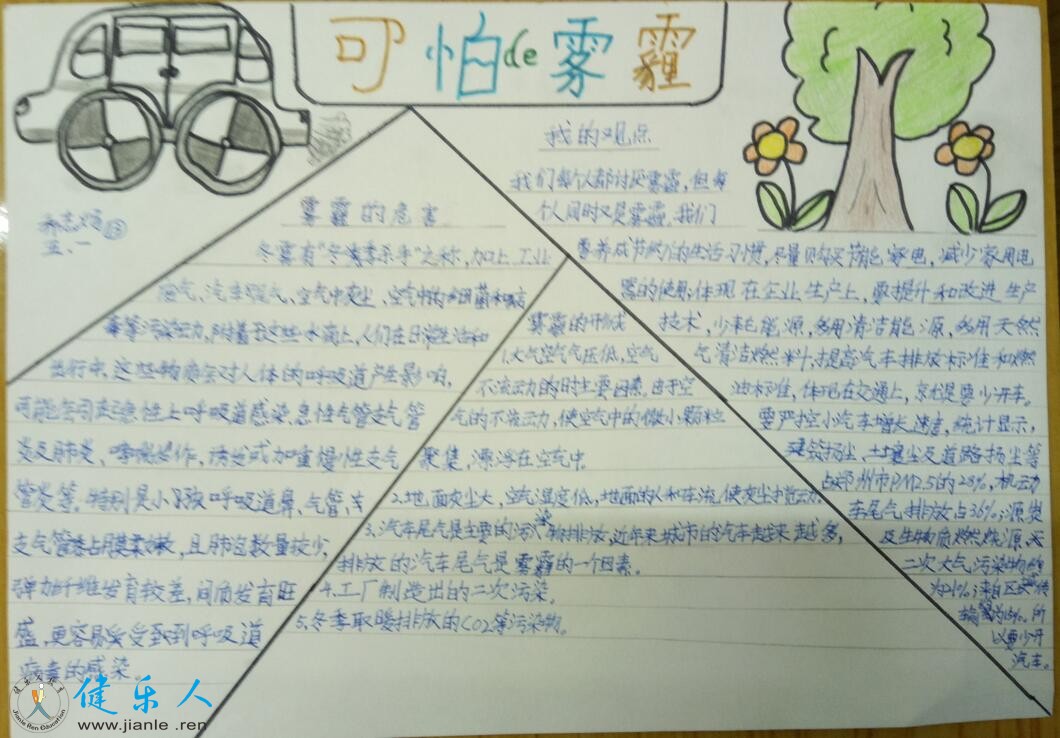 可怕de雾霾
五、一
雾霾的危害
冬雾有"冬季杀手"之称,加上工业
废气、汽车尾气、空气中灰尘、空气中的细菌和病
毒等污染物,附着于这些水滴上,人们在日常生活和
出行中,这些物质会对人体的呼吸道产生影响,
可能会引起急性上呼吸道感染急性气管支气管
炎及肺炎、哮喘发作,诱发或加重慢性支气
管炎等。特别是小孩呼吸道鼻、气管、支
支气管黏膜柔嫩,且肺泡数量较少,
弹力纤维发育较差,间质发育旺
盛,更容易受到呼吸道
病毒的感染。
雾霾的形成
1.大气空气气压低,空气
不流动的时主要因素。由于空
气的不流动,使空气中的微小颗粒
聚集,漂浮在空气中。
2.地面灰尘大,空气湿度低,地面的人和车流使灰尘
3.汽车尾气是主要的污染物排放,近年来城市的汽车越来越多,
排放的汽车尾气是雾霾的一个因素。
4.工厂制造出的二次污染。
5.冬季取暖排放的CO2等污染物。
我的观点
我们每个人都讨厌雾霾,但每
个人同时又是雾霾。我们
要养成节约的生活习惯,尽量购买节能家电,减少家用电
器的使用;体现在企业生产上,要提升和改进生产
技术,少耗能源,多用清洁能源,多用天然
气清洁燃料,提高汽车排放标准和燃
油标准,体现在交通上,就是要少开车。
要严控小汽车增长速度,统计显示,
建筑扬尘、土壤尘及道路扬尘等
占郑州市PM2.5的28%,机动
车尾气排放占36%;源炭
及生物质燃烧源、
二次大气污染物
为21%;来自区域传
输为15%。所
以要少开
汽车。
健乐人
www.jianle.ren
Jianle Ren Education